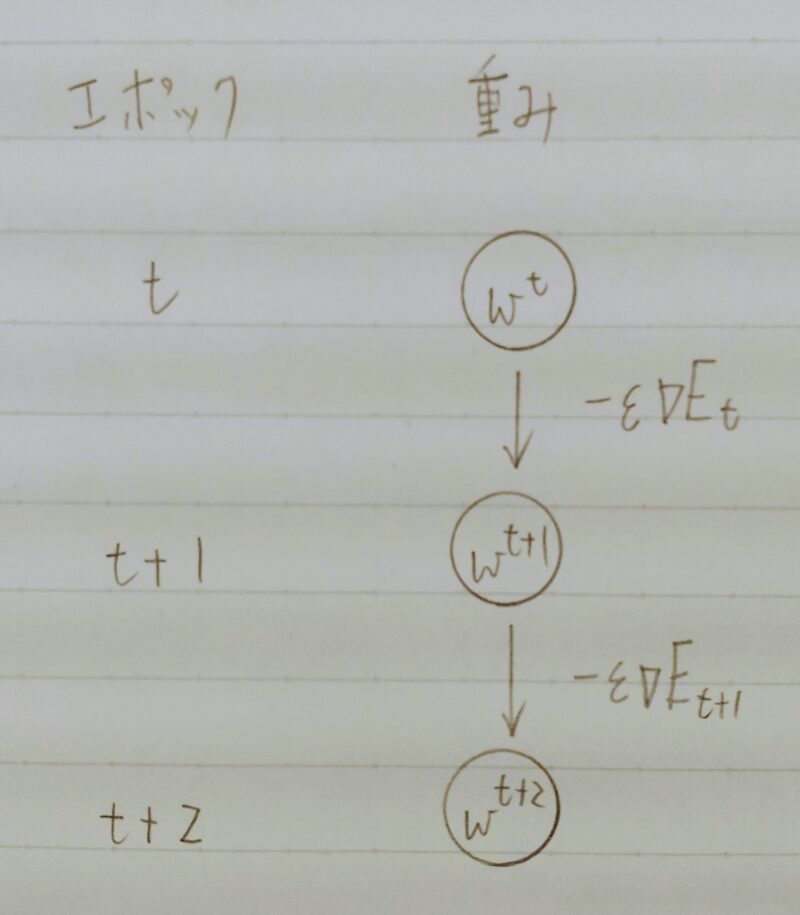 エポック 重み
t w^t
-ε∇E_t
t+1 w^{t+1}
-ε∇E_{t+1}
t+2 w^{t+2}